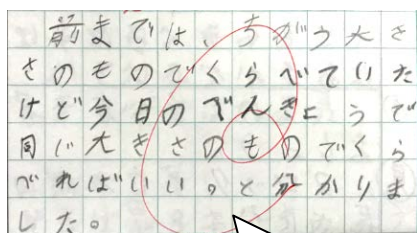 前までは、ちがう大き
さのものでくらべていた
けど今日のべんきょうで
同じ大きさのものでくら
べればいい。と分かりま
した。